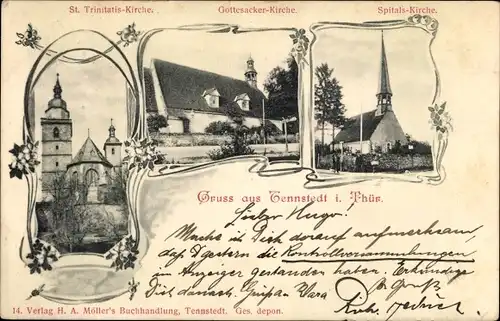 St. Trinitatis-Kirche.
Gottesacker-Kirche.
Spitals-Kirche.
Gruss aus Tennstedt i. Thür.
Lieber Hugo!
Mache Dich darauf aufmerksam,
daß gestern die Kontrollversammlungen
im Anzeiger gestanden haben. Erkundige
Dich danach.
14. Verlag H. A. Möller's Buchhandlung, Tennstedt. Ges. depon.